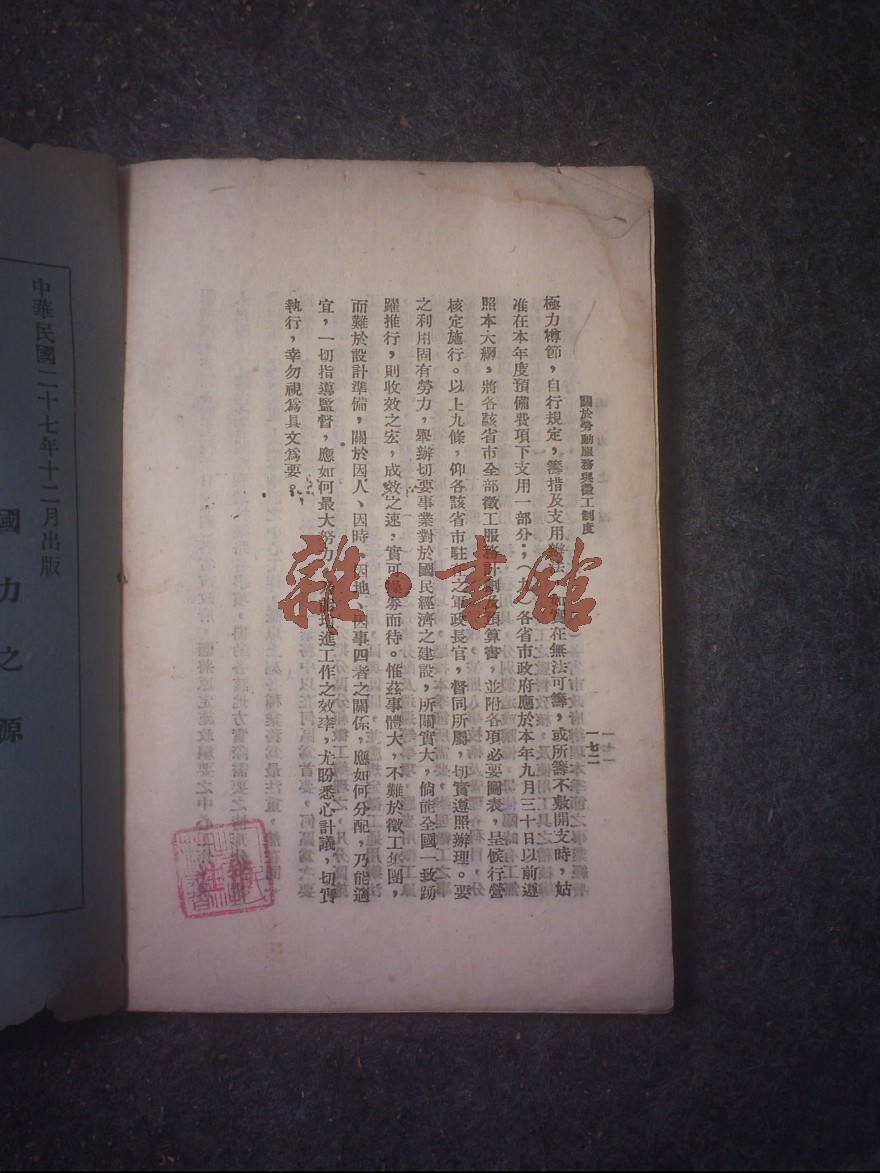 關於勞動服務與徵工制度
一七二
極力樽節，自行規定，籌措及支用辦法，如實在無法可籌，或所籌不敷開支時，姑
准在本年度預備費項下支用一部分；（九）各省市政府應於本年九月三十日以前遵
照本大綱，將各該省市全部徵工服務計劃及預算書，並附各項必要圖表，呈候行營
核定施行。以上九條，仰各該省市駐在之軍政長官，督同所屬，切實遵照辦理。要
之利用固有勞力，舉辦切要事業對於國民經濟之建設，所關實大，倘能全國一致踴
躍推行，則收效之宏，成效之速，實可操券而待。惟茲事體大，不難於徵工集團，
而難於設計準備，關於因人、因時、因地、因事四者之關係，應如何分配，乃能適
宜，一切指導監督，應如何最大努力，乃能增進工作之效率，尤盼悉心計議，切實
執行，幸勿視爲具文爲要。
雜·書館
中華民國二十七年十二月出版
國力之源